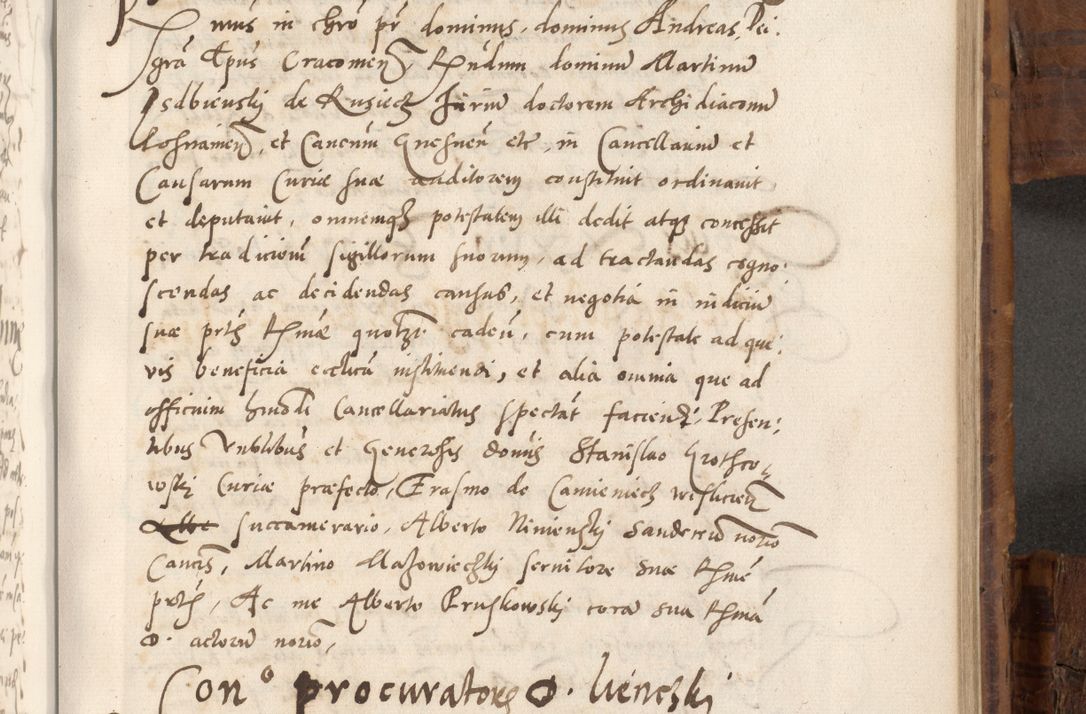 mus in chro pr dominus, dominus Andreas, Dei.
gra Epus Cracovien, Rndum dominu Martinu
Isdbienski de Rusiecz Juriu doctorem Archidiaconu
Posnanien, et Canonicu Gnesnen etc, in Cancellariu et
Causarum Curiæ suæ auditorem constituit ordinavit
et deputavit, omnemqz potestatem illi dedit atqz concessit
per tradicionem sigillorum suorum, ad tractandas cogno:
scendas ac decidendas causas, et negotia in iudiciu
suæ prtis Rsmæ quotzr cadeu, cum potestate ad que:
vis beneficia ecclica instituendi, et alia omnia que ad
officium hmodi Cancellariatus spectat faciendi, Presen:
tibus Nobilibus et Generosis donis Stanislao Grothco
wski Curiæ præfecto, Erasmo de Camieniech
succamerario, Alberto Niniewski notio
Cancris, Martino Mazowieczki servitore suæ Rsmæ
prtis, Ac me Alberto Pruskowski cora sua Rsma
D. actoru notio,
Con° procuratoris D. lienczki